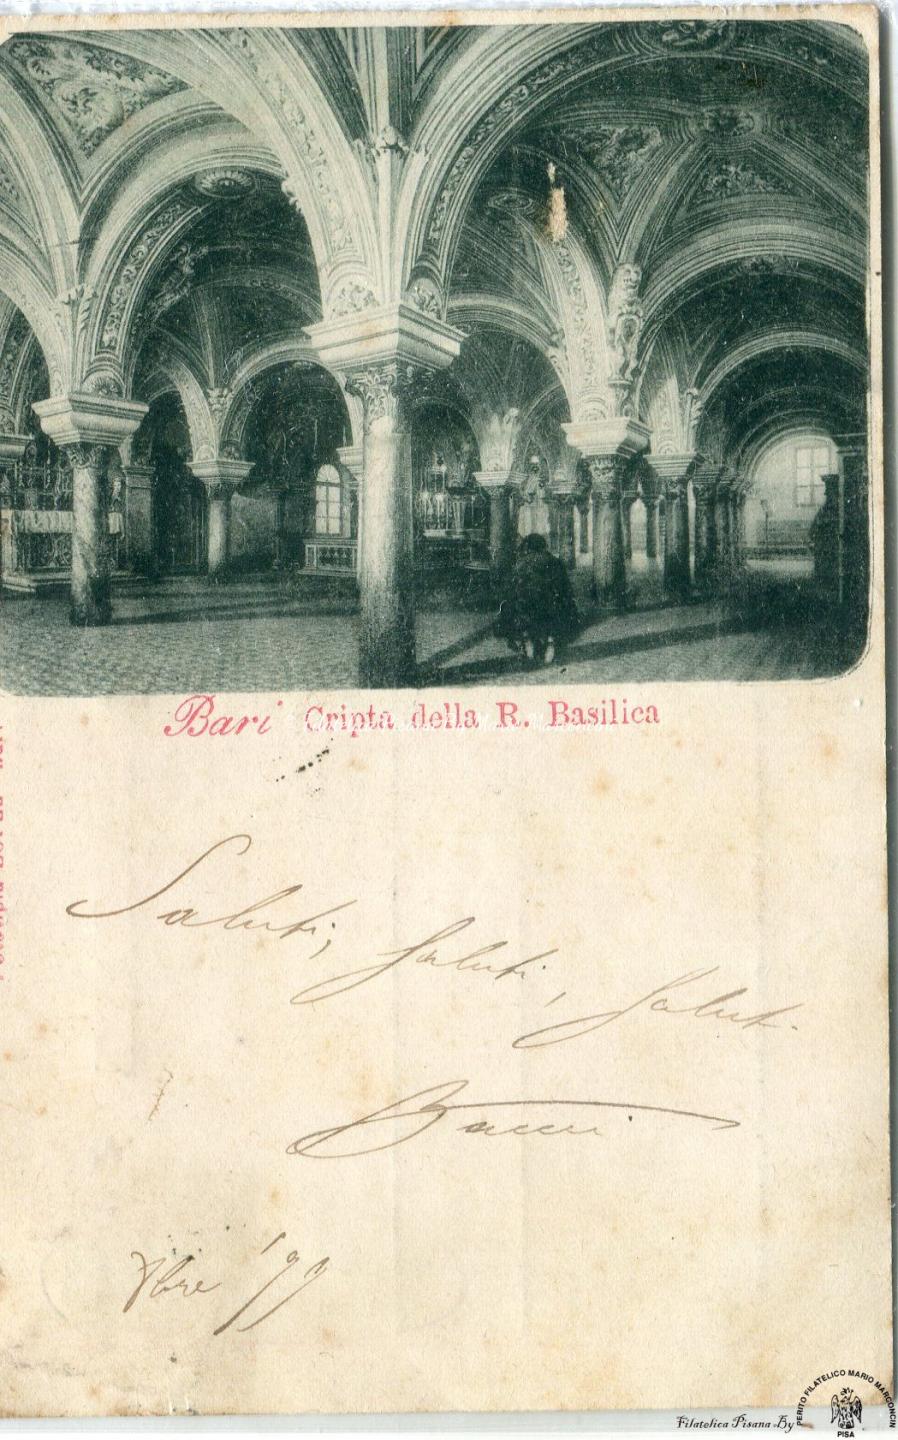 Bari Cripta della R. Basilica
Saluti, Saluti, Saluti
Bacci
Xbre '99
Filatelica Pisana By
PERITO FILATELICO MARIO MARCONCINI
PISA